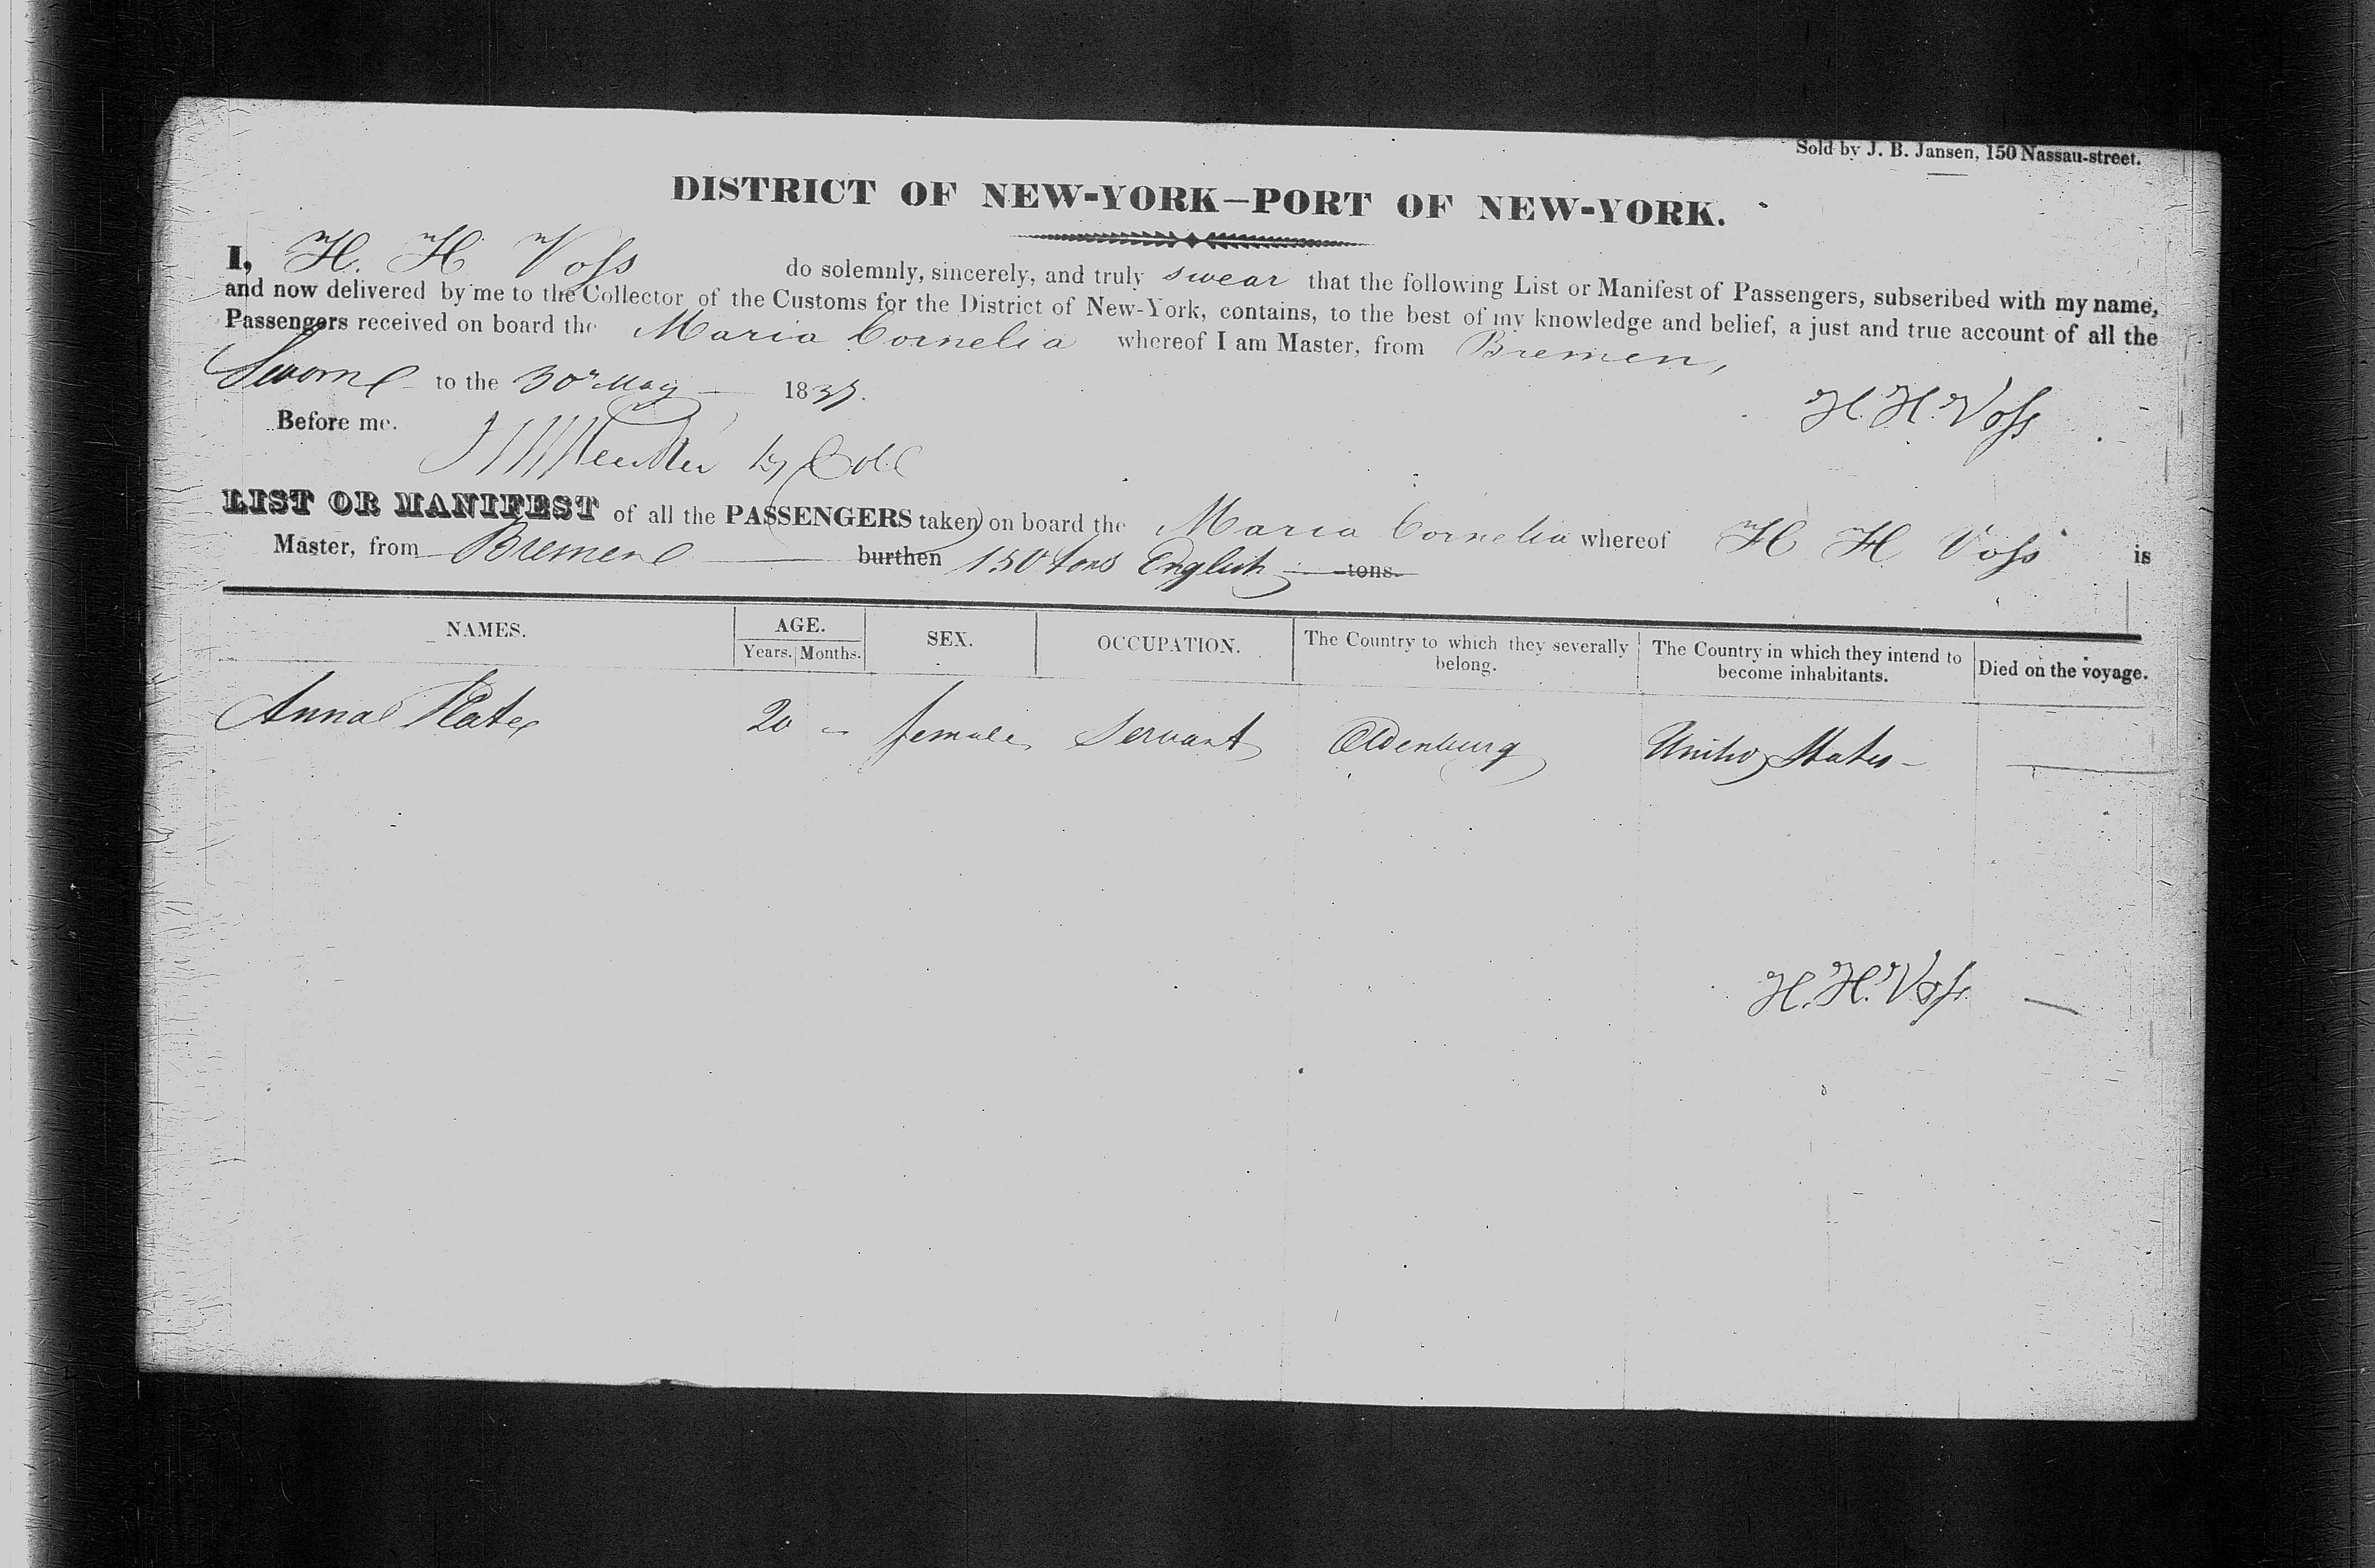 Sold by J. B. Jansen, 150 Nassau-street.
DISTRICT OF NEW-YORK—PORT OF NEW-YORK.
I, H. H Voſs do solemnly, sincerely, and truly swear that the following List or Manifest of Passengers, subscribed with my name,
and now delivered by me to the Collector of the Customs for the District of New-York, contains, to the best of my knowledge and belief, a just and true account of all the
Passengers received on board the Maria Cornelia whereof I am Master, from Bremen,
Sworn to the 30 May 1837.
H. H. Voſs
Before me.
LIST OR MANIFEST of all the PASSENGERS taken on board the Maria Cornelia whereof H H Voſs is
Master, from Bremen burthen 150 tons English tons.
NAMES. AGE. SEX. OCCUPATION. The Country to which they severally belong. The Country in which they intend to become inhabitants. Died on the voyage.
Years. Months.
Anna 20 – female Servant Oldenburg United States –
H. H. Voſs